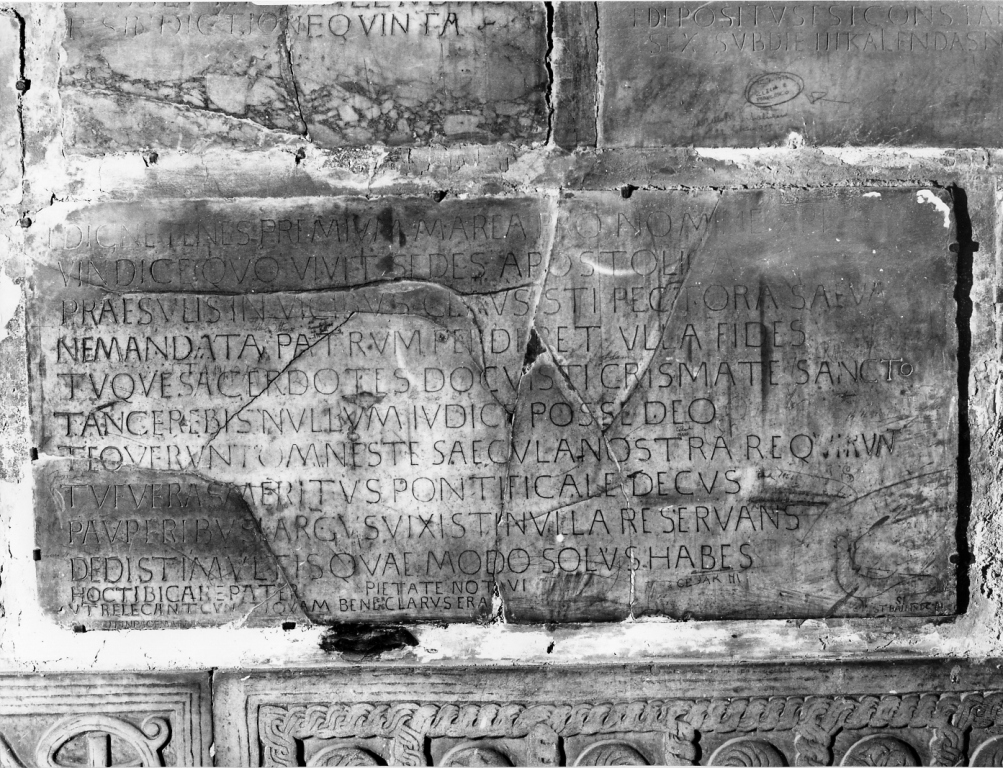 EṢ INDICTIONE QVINTA
DEPOSITVS EST CONSTAN
SEX SVB DIE III KALENDAS
DIGNE TENES PREMIVM MAREA PRO NOM
VINDICE QVO VIVET SEDES APOSTOLI
PRAESVLIS IN VICIBVS CLAVSISTI PECTORA SAEVA
NE MANDATA PATRVM PERDERET VLLA FIDES
TVQVE SACERDOTES DOCVISTI CRISMATE SANCTO
TANGERE BIS NVLLVM IVDICE POSSE DEO
TEQVERVNT OMNES TE SAECVLA NOSTRA REQVIRVN
TV FVERAS MERITVS PONTIFICALE DECVS
PAVPERIBVS LARGVS VIXISTI NVLLA RESERVANS
DEDISTI MVLTIS QVAE MODO SOLVS HABES
HOC TIBI CARE PATER PIETATE NOTAVI
VT RELEGANT CVNCTI QVAM BENE CLARVS ERAS